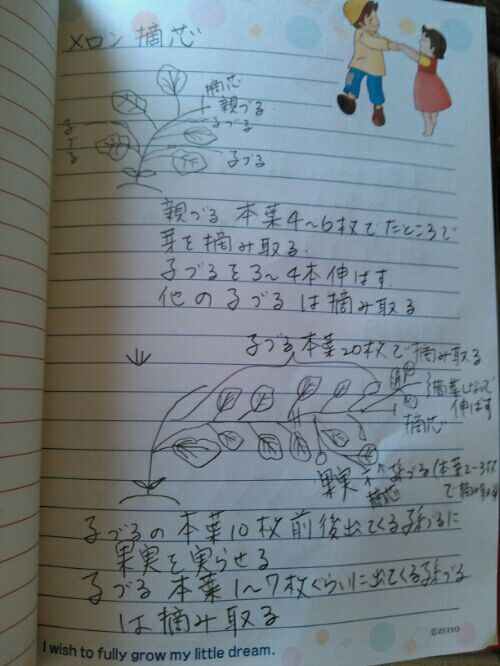 メロン 摘芯
摘芯
親づる
子づる
子づる
子づる
親づる 本葉4~6枚でたところで
芽を摘み取る.
子づるを3~4本伸ばす.
他の子づるは摘み取る
子づる本葉20枚で摘み取る
摘葉しないで
伸ばす
摘芯
果実
孫づる(本葉2~3枚
で摘み取る)
摘芯
子づるの本葉10枚前後出てくる孫づるに
果実を実らせる
子づる 本葉1~7枚ぐらいに出てくる孫づる
は摘み取る
©ZUIYO
I wish to fully grow my little dream.